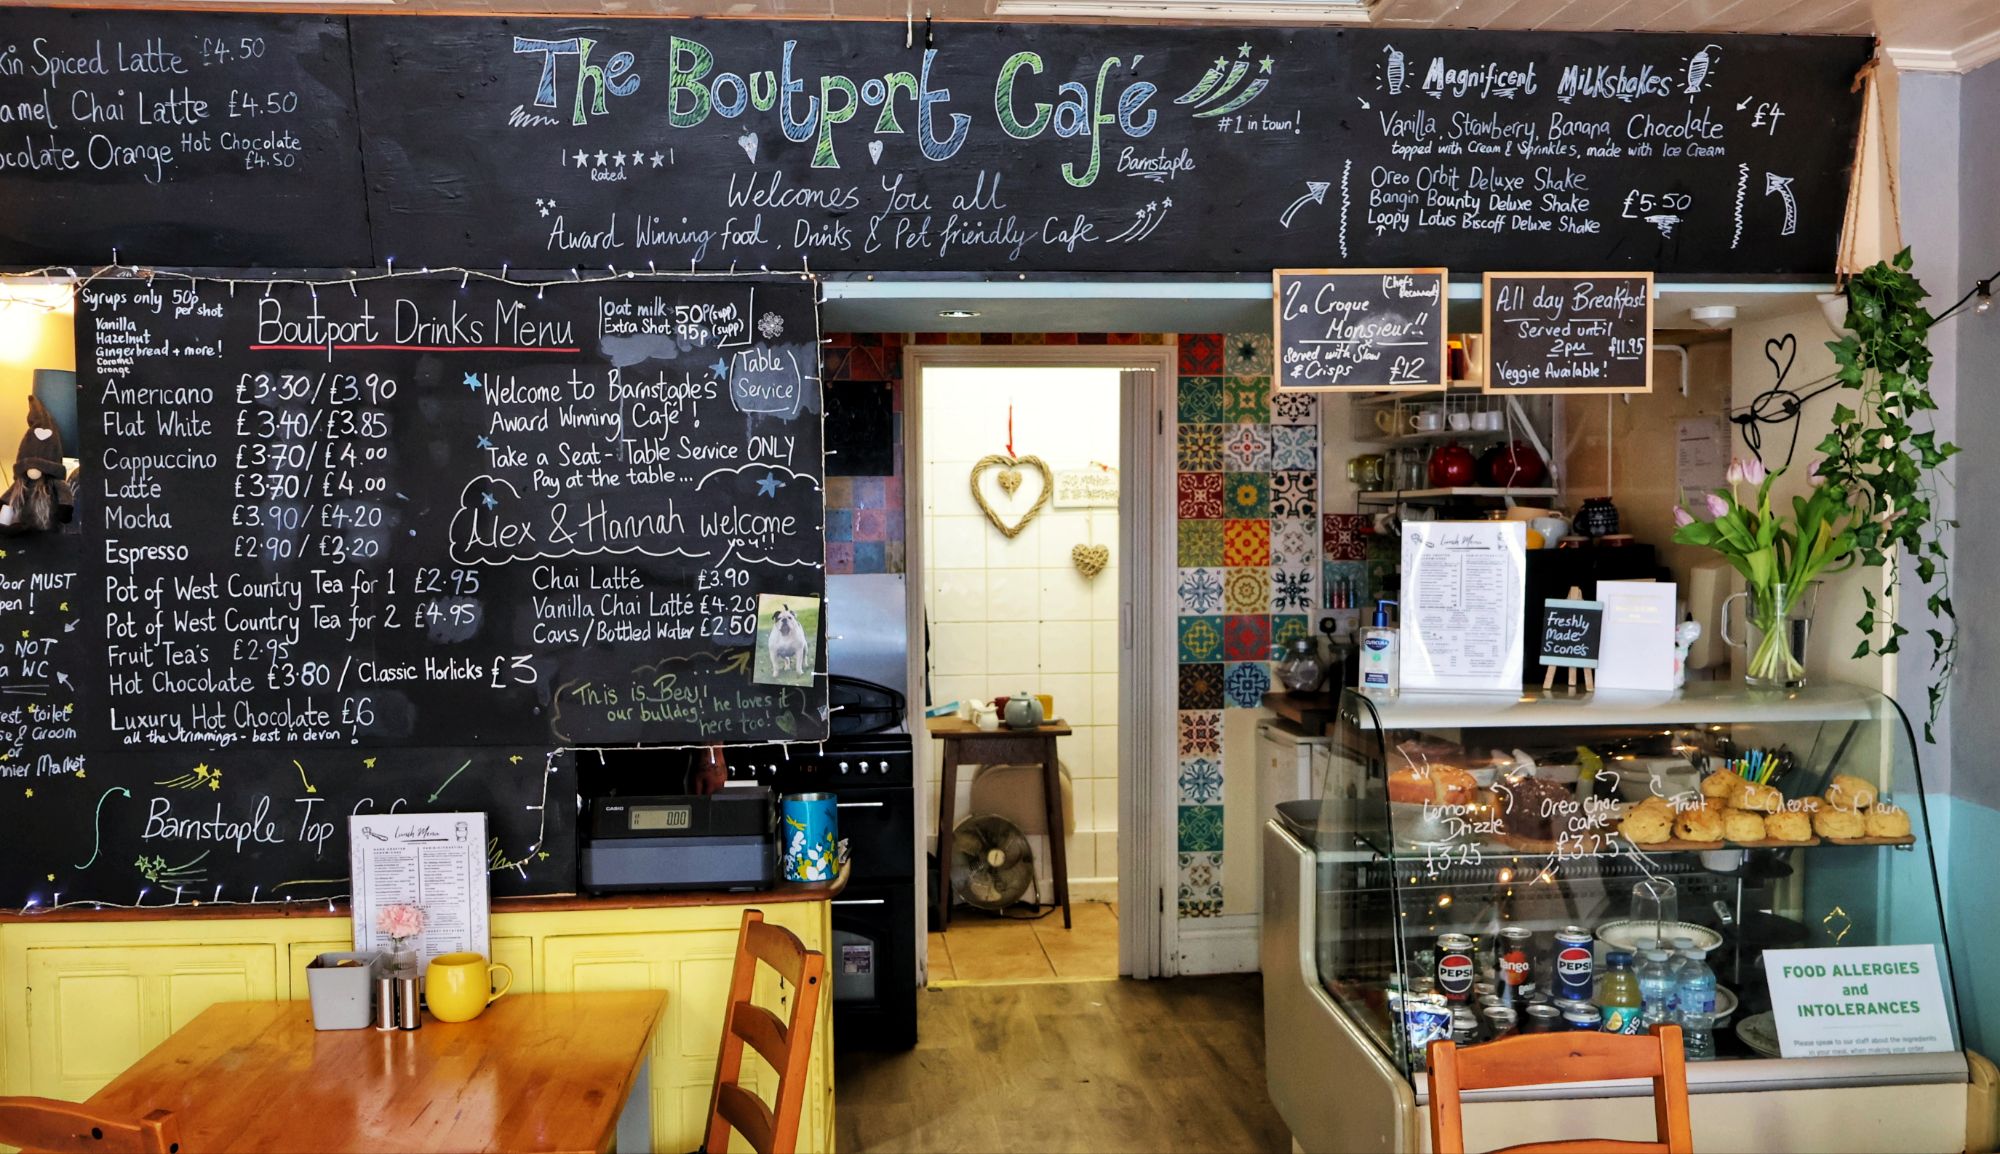 kin Spiced Latte £4.50
amel Chai Latte £4.50
ocolate Orange Hot Chocolate
£4.50
The Boutport Café
#1 in town!
Rated
Barnstaple
Welcomes You all
Award Winning food, Drinks & Pet friendly Cafe
Magnificent Milkshakes
Vanilla, Strawberry, Banana, Chocolate £4
topped with Cream & Sprinkles, made with Ice Cream
Oreo Orbit Deluxe Shake
Bangin Bounty Deluxe Shake £5.50
Loopy Lotus Biscoff Deluxe Shake
Syrups only 50p
per shot
Vanilla
Hazelnut
Gingerbread + more!
Caramel
Orange
Boutport Drinks Menu
Oat milk 50p (supp)
Extra Shot 95p (supp)
Table
Service
Americano £3.30/£3.90
Flat White £3.40/£3.85
Cappuccino £3.70/£4.00
Latté £3.70/£4.00
Mocha £3.90/£4.20
Espresso £2.90/£3.20
Pot of West Country Tea for 1 £2.95
Pot of West Country Tea for 2 £4.95
Fruit Tea's £2.95
Hot Chocolate £3.80 / Classic Horlicks £3
Luxury Hot Chocolate £6
all the trimmings - best in devon!
Welcome to Barnstaple's
Award Winning Café!
Take a Seat - Table Service ONLY
Pay at the table...
Alex & Hannah welcome
you!!
Chai Latté £3.90
Vanilla Chai Latté £4.20
Cans/Bottled Water £2.50
This is Benji
our bulldog! he loves it
here too!
Door MUST
pen!
NOT
a WC
est toilet
se & Groom
or
nnier Market
Barnstaple Top
Lunch Menu
CASIO
0.00
La Croque (Chefs
Recommend)
Monsieur!!
Served with Slaw
& Crisps £12
All day Breakfast
Served until
2pm £11.95
Veggie Available!
Lunch Menu
Freshly
Made
Scone's
Lemon
Drizzle
£3.25
Oreo Choc
Cake
£3.25
Fruit
Cheese
Plain
PEPSI
Tango
PEPSI
FOOD ALLERGIES
and
INTOLERANCES
Please speak to our staff about the ingredients
in your meal, when making your order